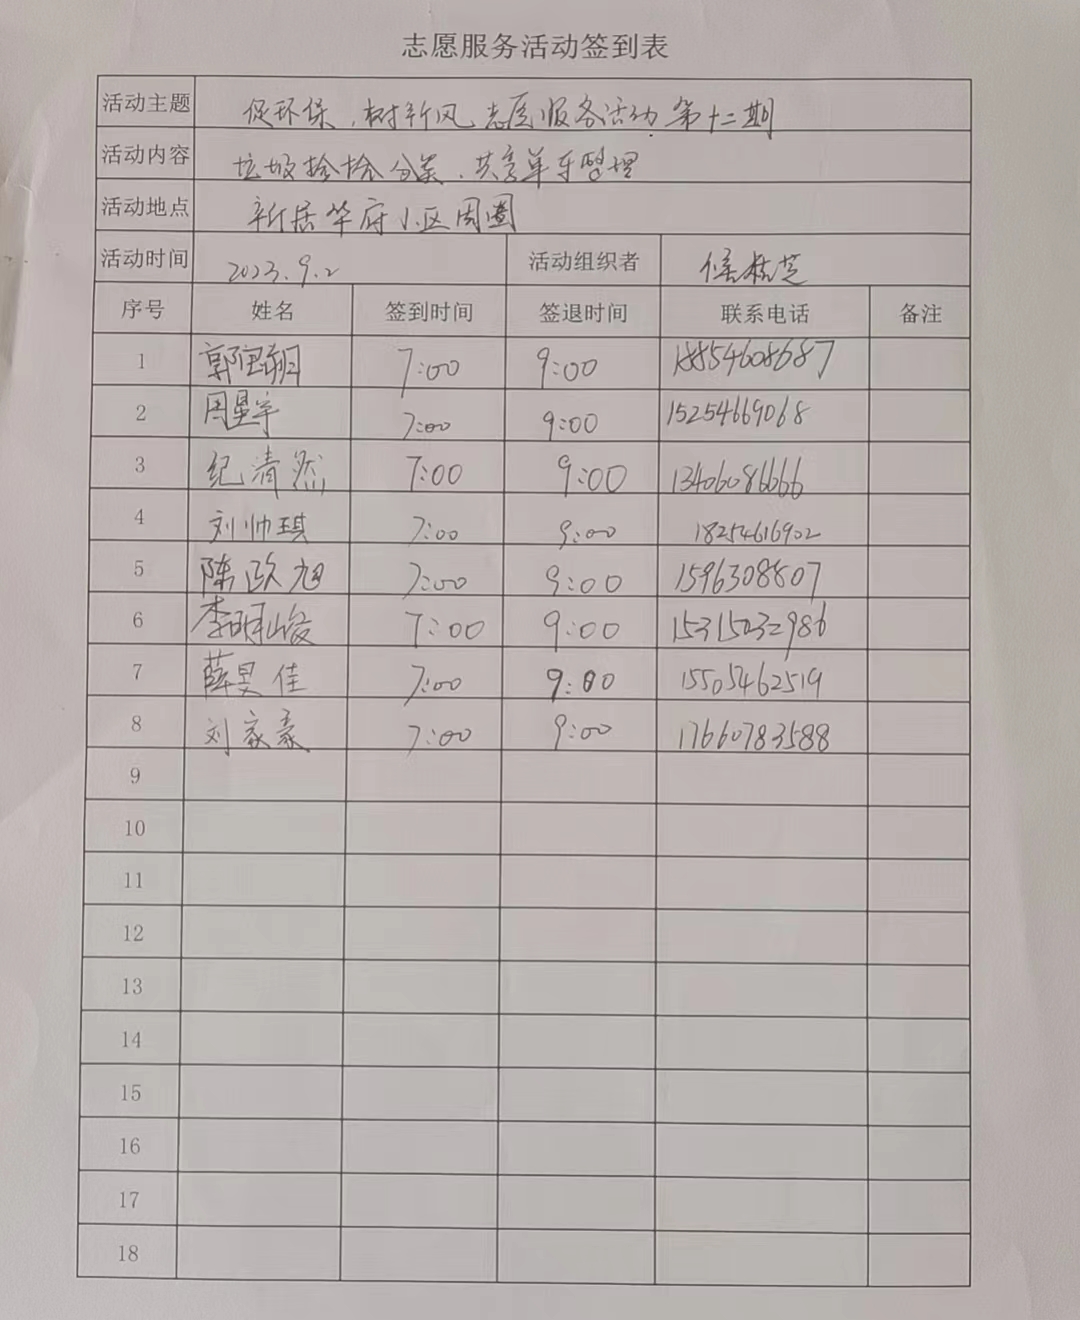 志愿服务活动签到表
活动主题 促环保，树新风志愿服务活动第十二期
活动内容 垃圾捡拾分类、共享单车整理
活动地点 新居华府小区周圈
活动时间 2023.9.2 活动组织者 侯桂芝
序号 姓名 签到时间 签退时间 联系电话 备注
1 7:00 9:00 18854608687
2 周星宇 7:00 9:00 15254669068
3 纪清然 7:00 9:00 13406086666
4 刘帅琪 7:00 9:00 18254616902
5 陈政旭 7:00 9:00 1596308807
6 李明峻 7:00 9:00 15315032986
7 薛昊佳 7:00 9:00 15505462519
8 刘家豪 7:00 9:00 17660783588
9
10
11
12
13
14
15
16
17
18